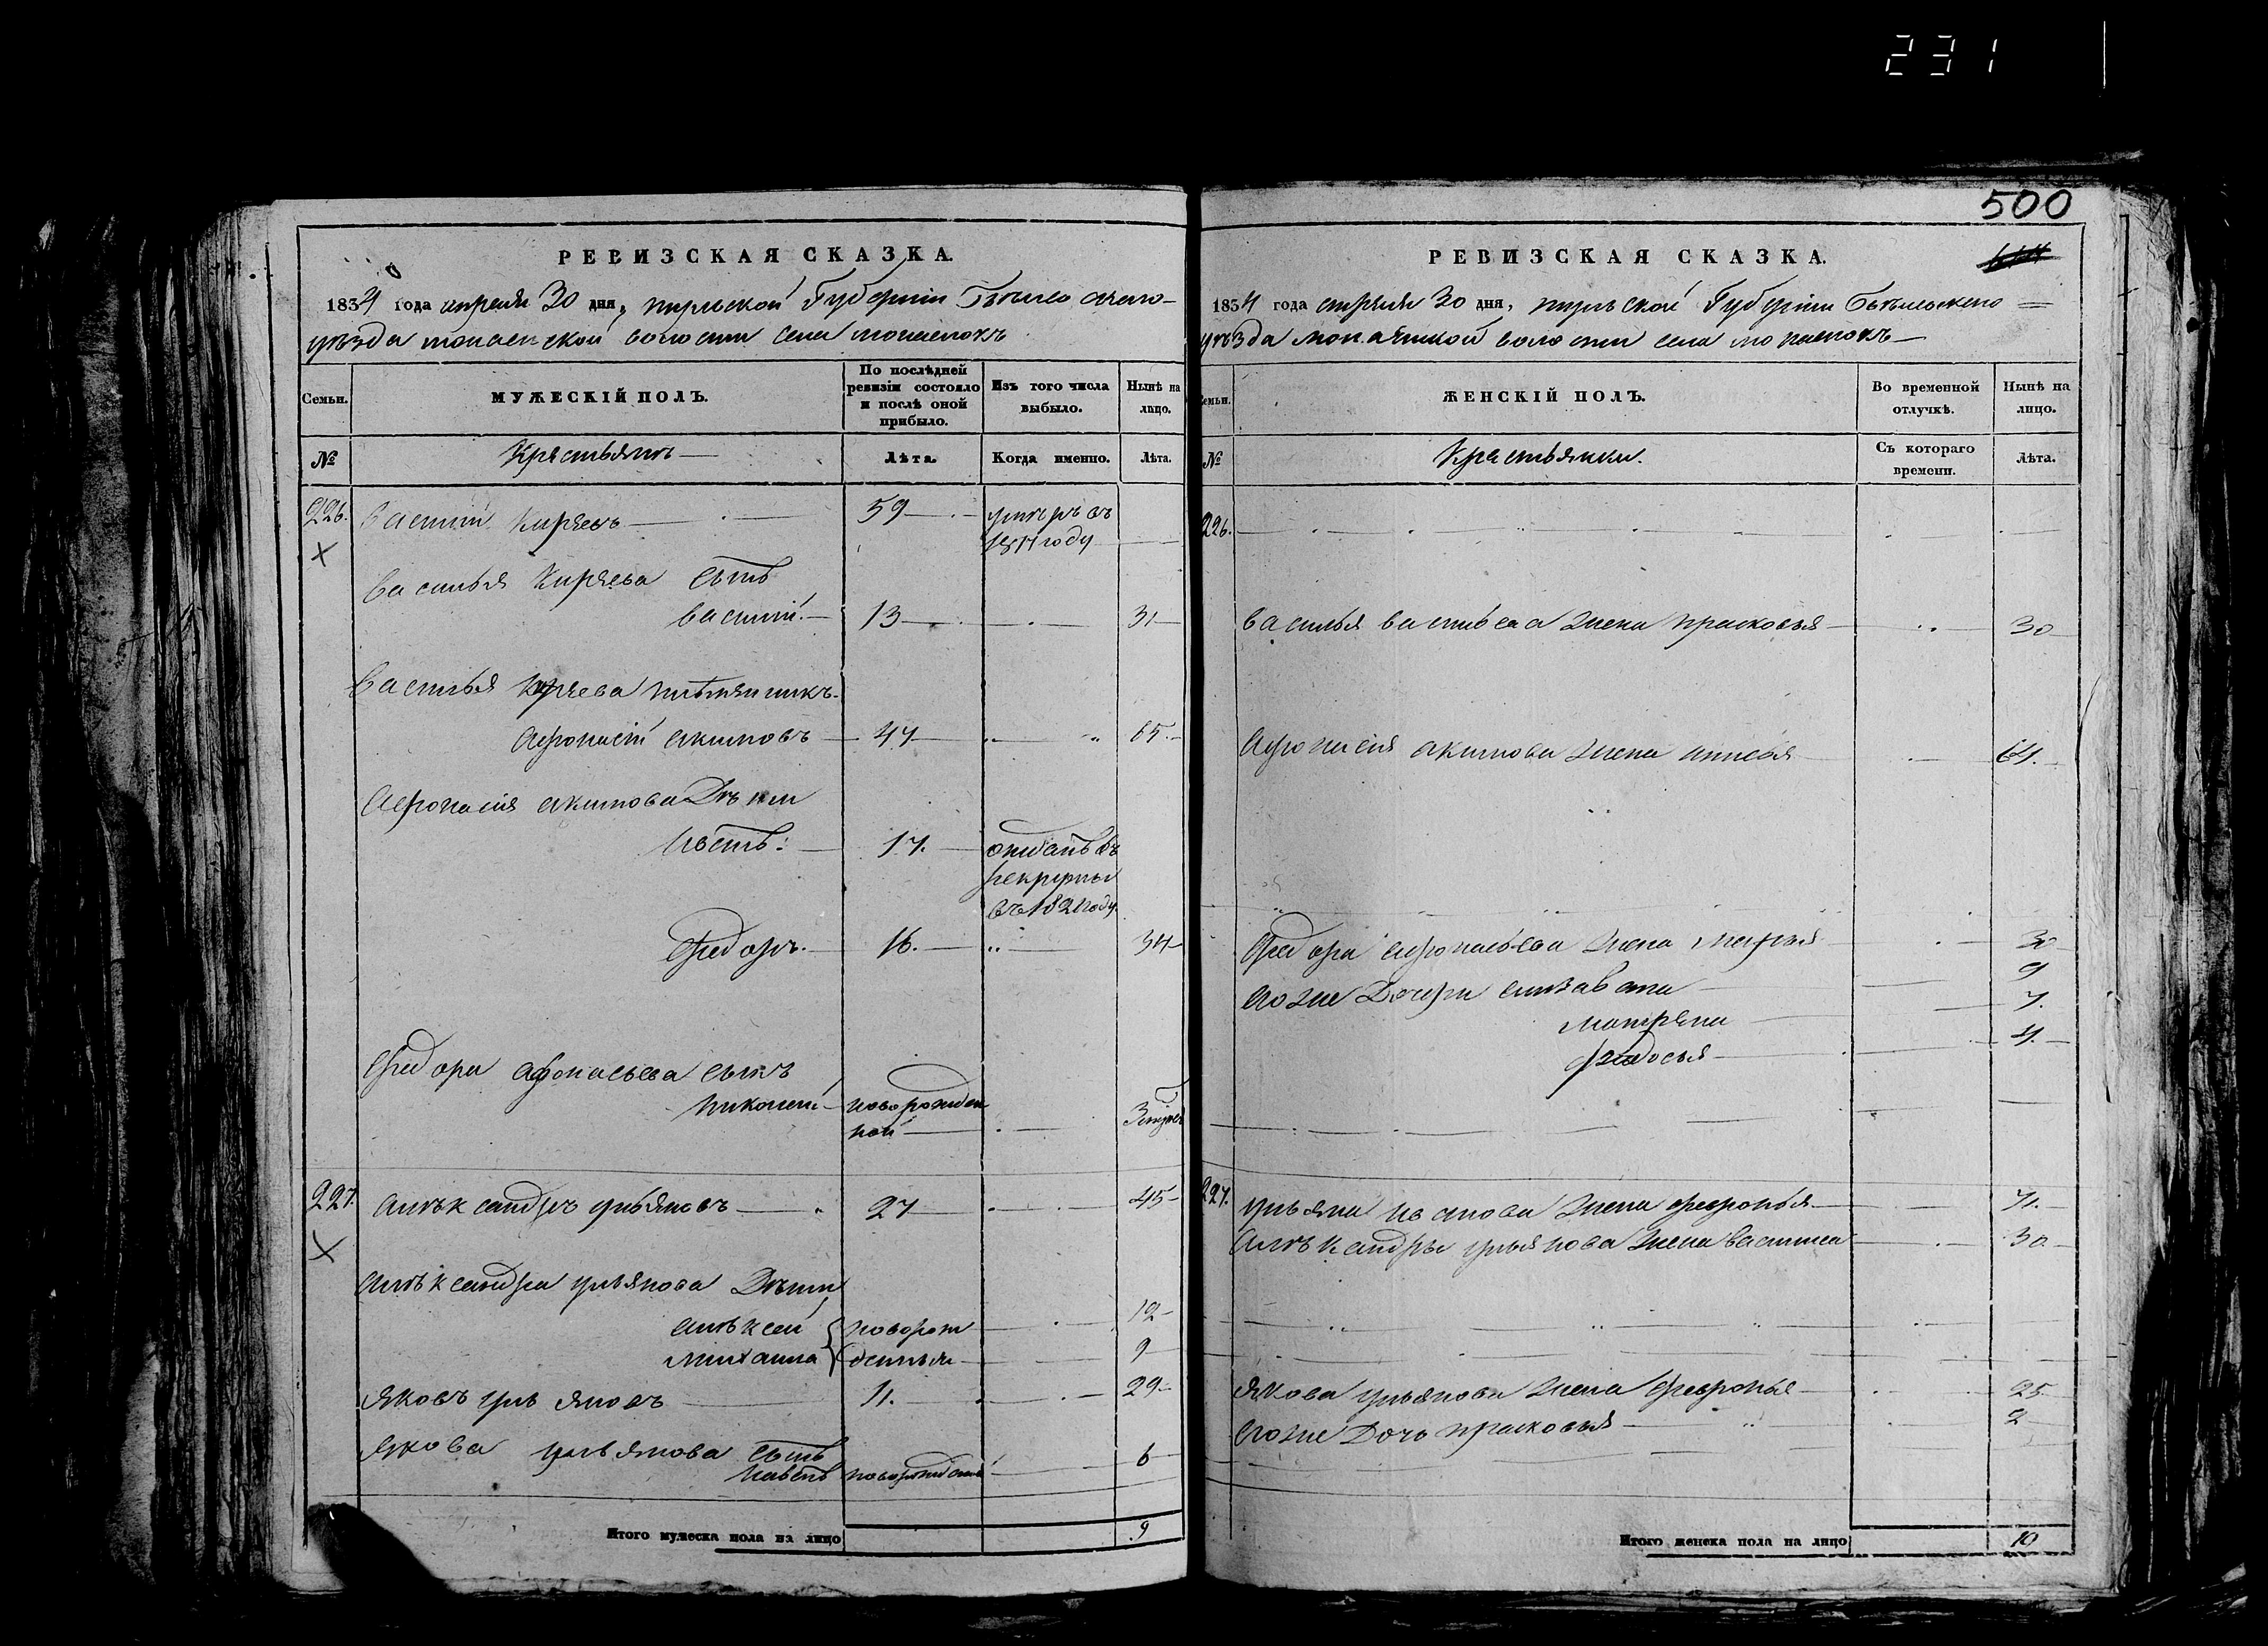 231
РЕВИЗСКАЯ СКАЗКА.
1834 года апреля 30 дня, губернии
уѣзда волости села
Семьи.
МУЖЕСКІЙ ПОЛЪ.
По послѣдней ревизіи состояло и послѣ оной прибыло.
Изъ того числа выбыло.
Нынѣ на лицо.
№
Крестьянъ
Лѣта.
Когда именно.
Лѣта.
226. Василий Киреевъ 59 умеръ въ
году
Василья Киреева сынъ
Василий. 13 31
Василья Киреева племянникъ
Афонасий Акимовъ 47 65
Афонасия Акимова дѣти
17. отданъ въ
рекруты
въ 1821 году
Федоръ. 16. 34
Федора Афонасьева сынъ
Николай новорожден
ной
227. Алѣксандръ Ульяновъ 27 45
Алѣксандра Ульянова дѣти
Алѣксей новорож 12
Михаила денныя 9
Яковъ Ульяновъ 11. 29
Якова Ульянова сынъ
новорожденый 6
Итого мужеска пола на лицо 9
500
РЕВИЗСКАЯ СКАЗКА.
1834 года апреля 30 дня, губернии
уѣзда волости села
Семьи.
ЖЕНСКІЙ ПОЛЪ.
Во временной отлучкѣ.
Нынѣ на лицо.
№
Крестьянки.
Съ котораго времени.
Лѣта.
226.
Василья Васильева жена Прасковья 30
Афонасия Акимова жена 64.
Федора Афонасьева жена Марья 30
Ево же дочери Елизавета 9
Матрена 7.
Федосья 4.
227. Ульяна Иванова жена Февронья 71.
Алѣксандры Ульянова жена Василиса 30
Якова Ульянова жена Февронья 25
Ево же дочь Прасковья 2
Итого женска пола на лицо 10